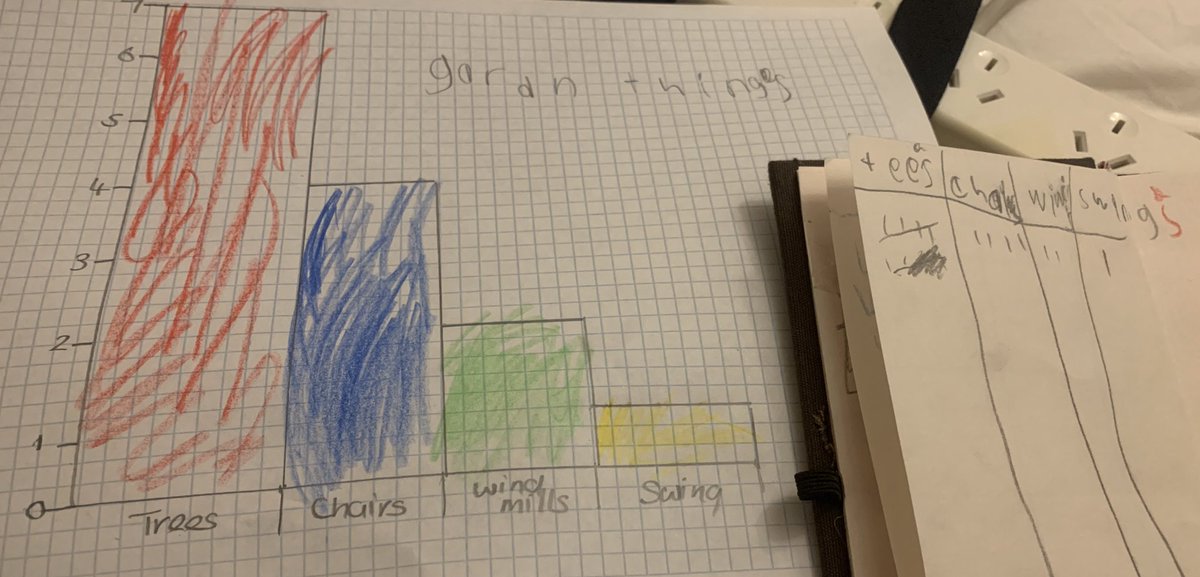 gardn things
7
6
5
4
3
2
1
0
Trees
Chairs
wind
mills
Swing
tees
chair
win
swings